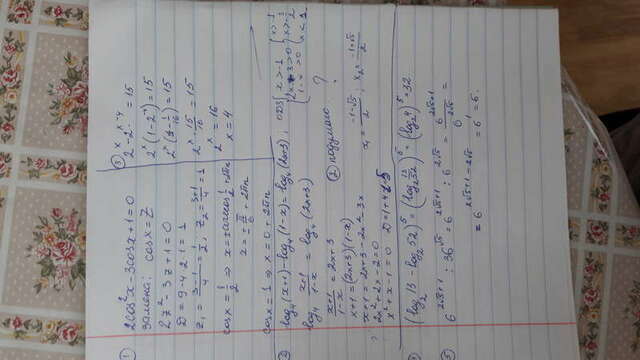 ① 2cos²x - 3cosx + 1 = 0
замена: cosx = z
2z² - 3z + 1 = 0
D = 9 - 4·2·1 = 1
z₁ = (3-1)/4 = 1/2, z₂ = (3+1)/4 = 1
cosx = 1/2 ⇒ x = ± arccos 1/2 + 2πn
x = ± π/6 + 2πn
cosx = 1 ⇒ x = 0 + 2πn
③ 2^x - 2^(x-4) = 15
2^x (1 - 2^(-4)) = 15
2^x (1 - 1/16) = 15
2^x · 15/16 = 15
2^x = 16
x = 4
② log₄(x+1) - log₄(1-x) = log₄(2x+3), ОДЗ
x > -1
3 > 0
1 - x > 0
x > -1
x < 1
log₄ (x+1)/(1-x) = log₄(2x+3)
(x+1)/(1-x) = 2x+3
x+1 = (2x+3)(1-x)
x+1 = 2x+3 - 2x² - 3x
? 2x² + 2x - 2 = 0
x² + x - 1 = 0 D = 1+4 = 5
② подумаю ?
x₁ = (-1-√5)/2 ; x₂ = (-1+√5)/2
(log₂ 13 - log₂ 52)⁵ = (log₂ 13/52)⁵ = (log₂ 4)⁵ = 32
⑤ 6^(2√5+1) : 36^√5 = 6^(2√5+1) : 6^(2√5) = 6^(2√5+1)/6^(2√5) =
= 6^(2√5+1-2√5) = 6¹ = 6.